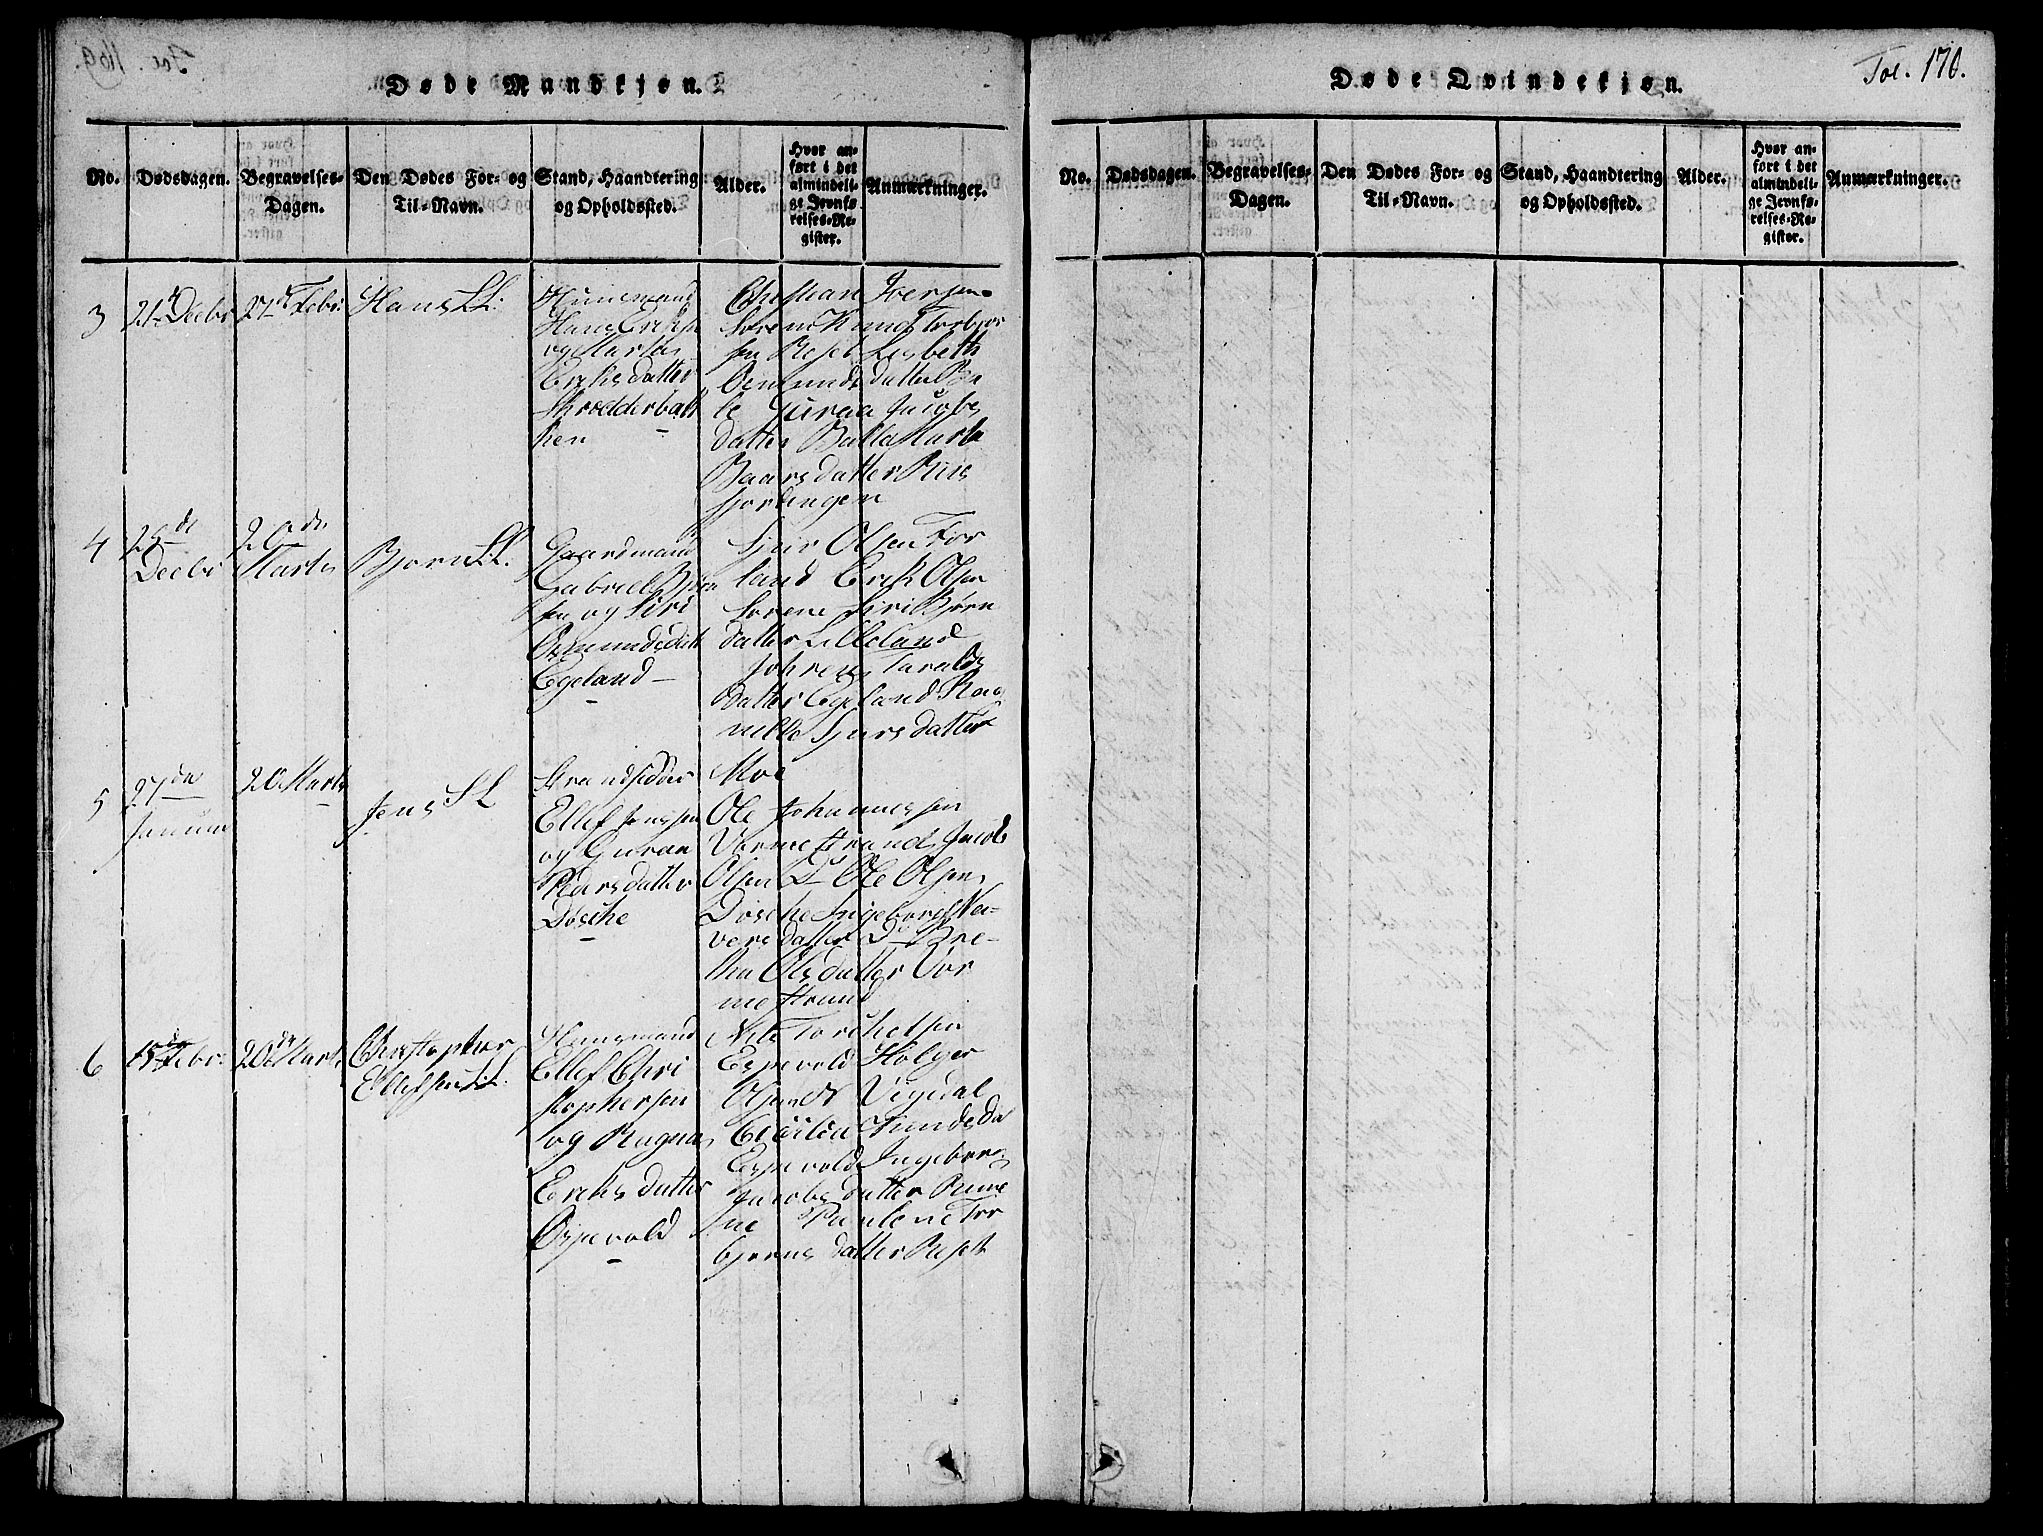 Døde Mandkjøn.
No.
Dødsdagen.
Begravelses-
Dagen.
Den Dødes For- og
Til-Navn.
Stand, Haandtering
og Opholdssted.
Alder.
Hvor an-
ført i det
almindeli-
ge Jevnfø-
relses-Re-
gister.
Anmærkninger.
3
21 Decbr
27de Febr:
Hans S.L.
Huusmand
Hans Eriks
og Marta
Eriksdatter
Skrœdderbak
ken
Christian Iversen
Torbjør
sen Resel Lisbeth
Osmundsdatter Ba
le Guroa Jacobs
datter Balle Marte
Baarsdatter Riis
fortingen
4
26de
Decbr
20de
Marts
Bjørn S.L.
Gaardmand
Gabriel Bjørn
sen og Siri
Osmundsdatt
Egeland
Sjur Olsen For
land Erik Olsen
Sorene Siri Bjørn
datter Lilleland
Johrene Taralds
datter Egeland Rag
nilde Sjursdatter
5
27de
Januar
20 Marts
Jens S L
Strandsidder
Ellef Jenssen
og Guroa
Pedersdatter
Døsche
Moe
Ole Johannessen
Vormestrand Jacob
Olsen Do Ole Olsen
Døsche Ingeborg Va-
versdatter Do Bre-
tha Olsdatter Vor
mestrand
6
15de Febr:
20de Marts
Christopher
Ellefsen S.L.
Huusmand
Ellef Chri
stophersen
og Ragna
Eriksdatter
Espevold
Nils Torchelsen
Espevold Holger
Olsen Vigedal
Cecilia
Espevold Ingeborg
Jacobsdatter
ne Paulene Tor
bjørnsdatter Resel
Døde Qvindekjøn.
Fol. 170.
No.
Dødsdagen.
Begravelses-
Dagen.
Den Dødes For- og
Til-Navn.
Stand, Haandtering
og Opholdssted.
Alder.
Hvor an-
ført i det
almindeli-
ge Jevnfø-
relses-Re-
gister.
Anmærkninger.